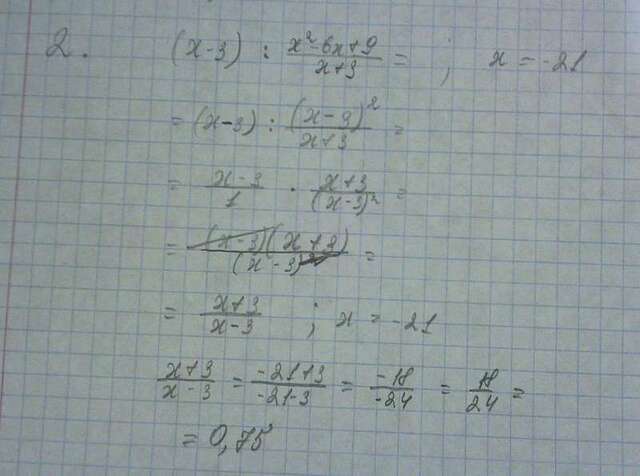 2. (x-3) : \frac{x²-6x+9}{x+3} = ; x = -21
= (x-3) : \frac{(x-3)²}{x+3} =
= \frac{x-3}{1} · \frac{x+3}{(x-3)²} =
= \frac{(x-3)(x+3)}{(x-3)²} =
= \frac{x+3}{x-3} ; x = -21
\frac{x+3}{x-3} = \frac{-21+3}{-21-3} = \frac{-18}{-24} = \frac{18}{24} =
= 0,75